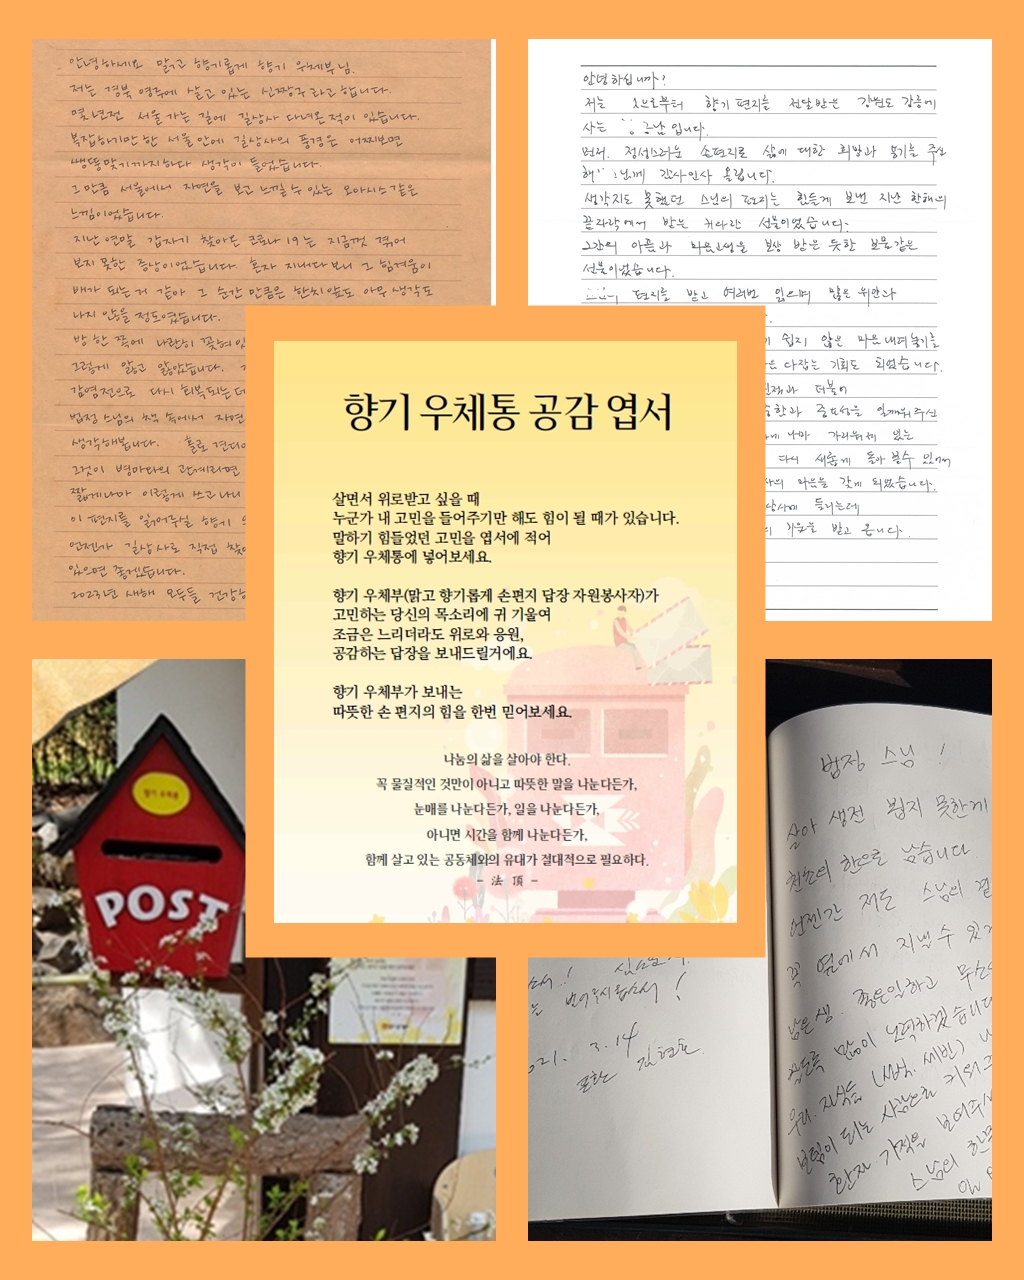 안녕하세요 맑고 향기롭게 향기 우체부님.
저는 경북 영주에 살고 있는 신짱구라고 합니다.
몇년전 서울 가는 길에 길상사 다녀온 적이 있습니다.
복잡하기만 한 서울 안에 길상사의 풍경은 어찌보면
생뚱맞기까지하다 생각이 들었습니다.
그 만큼 서울에서 자연을 보고 느낄 수 있는 오아시스 같은
느낌이었습니다.
지난 연말 갑자기 찾아든 코로나 19는 지금껏 겪어
보지 못한 증상이었습니다. 혼자 지내다 보니 그 힘겨움이
배가 되는거 같아 그 순간 만큼은 한치 앞도 아무 생각도
나지 않을 정도였습니다.
방 한 쪽에 나란히 꽂혀있
그렇게 앓고 앓았습니다.
감염전으로 다시 회복되는데
법정 스님의 책 속에서 자연
생각해봅니다. 홀로 견디
그것이 병마와의 관계라면
짧게나마 이렇게 쓰고나니
이 편지를 읽어주실 향기
언젠가 길상사로 직접 찾
있으면 좋겠습니다.
2023년 새해 모두들 건강
안녕하십니까?
저는 으로부터 향기 편지를 전달받은 강원도 강릉에
사는 입니다.
먼저. 정성스러운 손편지로 삶에 대한 희망과 용기를 주신
님께 감사인사 올립니다.
생각지도 못했던 스님의 편지는 힘들게 보낸 지난 한해의
끝자락에서 받은 커다란 선물이었습니다.
그간의 아픔과 마음고생을 보상 받은 듯한 보물같은
선물이었습니다.
편지를 받고 여러번 읽으며 많은 위안과
쉽지 않은 마음내려놓기를
다잡는 기회도 되었습니다.
더불어
일깨워주신
나마 가리워져 있는
다시 새롭게 돌아 볼수 있게
마음을 갖게 되었습니다.
들리는데
받고 옵니다.
향기 우체통 공감 엽서
살면서 위로받고 싶을 때
누군가 내 고민을 들어주기만 해도 힘이 될 때가 있습니다.
말하기 힘들었던 고민을 엽서에 적어
향기 우체통에 넣어보세요.
향기 우체부(맑고 향기롭게 손편지 답장 자원봉사자)가
고민하는 당신의 목소리에 귀 기울여
조금은 느리더라도 위로와 응원,
공감하는 답장을 보내드릴거에요.
향기 우체부가 보내는
따뜻한 손 편지의 힘을 한번 믿어보세요.
나눔의 삶을 살아야 한다.
꼭 물질적인 것만이 아니고 따뜻한 말을 나눈다든가,
눈매를 나눈다든가, 일을 나눈다든가,
아니면 시간을 함께 나눈다든가,
함께 살고 있는 공동체와의 유대가 절대적으로 필요하다.
- 法 頂 -
향기 우체통
POST
3. 14
법정 스님!
살아 생전 뵙지 못한게
천추의 한으로 남습니다
언젠간 저도 스님의 곁
꼭 옆에서 지낼 수 있
남은 생. 좋은일하고
많이 노력하겠습니다
우리. 자식들 (첫번. 세번)
보탬이 되는 사람으로 키워
한자 기적을 보여주시
스님의 한